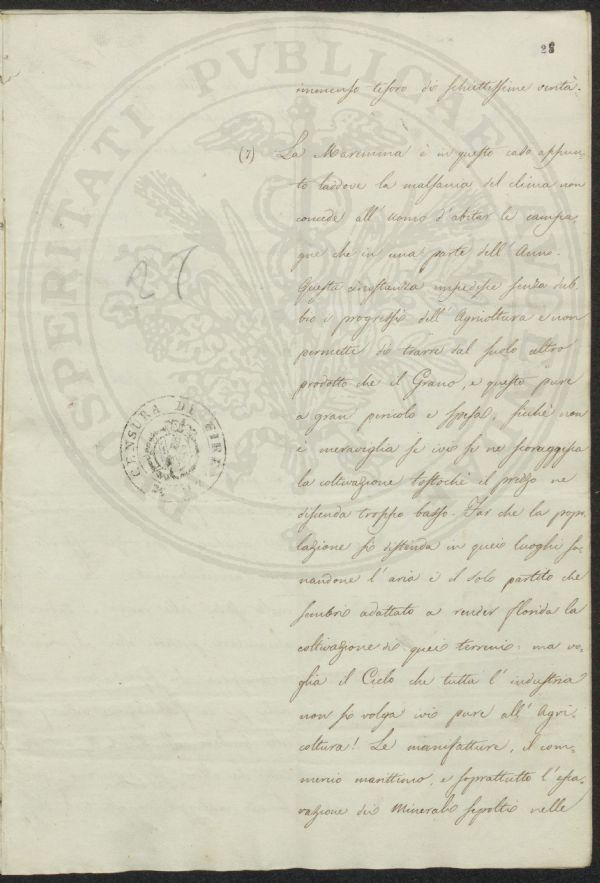 28
immenso tesoro di schiettissime verità.
(7) La Maremma è in questo caso appun-
to laddove la malsania del clima non
concede all' Uomo d'abitar le campa-
gne che in una parte dell' Anno.
Questa circostanza impedisce senza dub-
bio i progressi dell' Agricoltura e non
permette di trarre dal suolo altro
prodotto che il Grano, e questo pure
a gran pericolo e spesa, sicchè non
è meraviglia se ivi se ne scoraggisca
la coltivazione tostochè il prezzo ne
discenda troppo basso. Far che la popo-
lazione si distenda in quei luoghi sa-
nandone l'aria è il solo partito che
sembri adattato a render florida la
coltivazione di quei terreni: ma vo-
glia il Cielo che tutta l' industria
non si volga ivi pure all' Agri-
coltura! Le manifatture, il com-
mercio marittimo, e soprattutto l' esca-
vazione dei Minerali sepolti nelle
27
CENSURA DI FIRE
PROSPERITATI PVBLICAE AVGENDAE